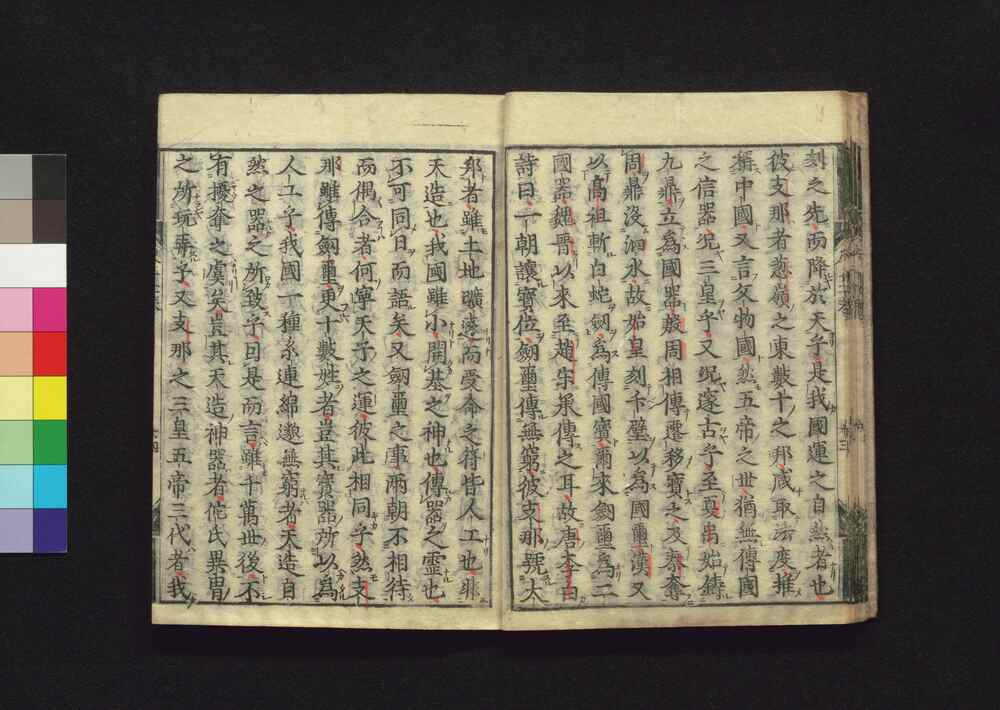 刻之先而降於天乎是我國運之自然者也
彼支那者葱嶺之東數十之邦咸取法度推
稱中國又言文物國然五帝之世猶無傳國
之信器况三皇乎又况邃古乎至夏禹始鑄
九鼎立爲國器殷周相傳遷移寶之及秦奪
周鼎没泗水故始皇刻卞璧以爲國璽漢又
以高祖斬白蛇劔爲傳國寶爾來劔璽爲二
國器魏晉以來至趙宋承傳之耳故唐李白
詩曰一朝讓寶位劔璽傳無窮彼支那號大
邦者雖土地曠遠而受命之符皆人工也非
天造也我國雖小開基之神也傳器之靈也
不可同日而語矣又劔璽之事兩朝不相待
而偶合者何寧天子之運彼此相同乎然支
那雖傳劔璽更十數姓者豈其寶器所以爲
人工乎我國一種系連綿邈無窮者天造自
然之器之所致乎因是而言雖千萬世後不
有擾奪之虞矣豈其天造神器者佗氏異胄
之所玩弄乎又支那之三皇五帝三代者我